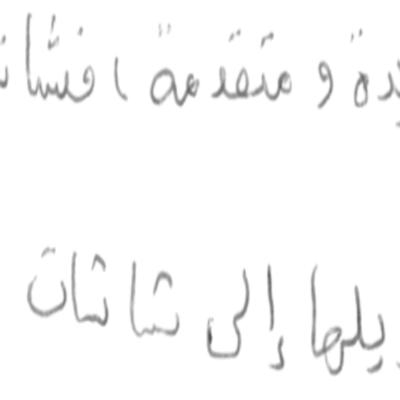 ومتقدمة ، فشا
يلها إلى شاشات